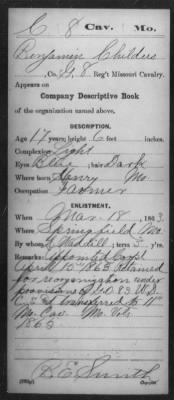 C 8 Cav. Mo.
Benjamin Childers
, Co. G, 8 Reg't Missouri Cavalry.
Appears on
Company Descriptive Book
of the organization named above.
DESCRIPTION.
Age 17 years; height 6 feet inches
Complexion Light
Eyes Blue; hair Dark
Where born Henry Mo.
Occupation Farmer
ENLISTMENT.
When Mar. 18, 1863.
Where Springfield Mo.
By whom Waddill; term 3 y'rs.
Remarks: Appointed Corpl
April 15 1863 Retained
for reorganization under
provisions 83 W.D.
transferred to 11"
Mo. Cav. Mo. Vols.
1865
K E Smith
Copyist.